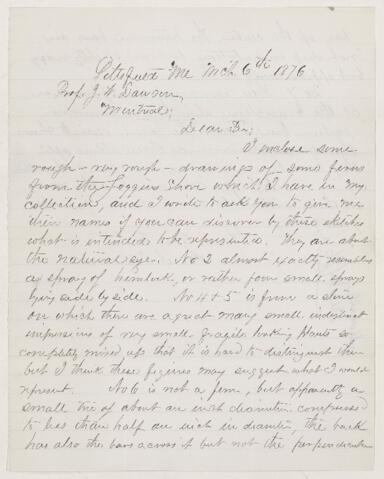 Pittsfield Me Mch 6th 1876
Prof. J. W. Dawson,
Montreal;
Dear Sir;
I enclose some
rough - very rough - drawings of some ferns
from the Joggins Shore which I have in my
collection, and I write to ask you to give me
their names if you can discover by these sketches
what is intended to be represented. They are about
the natural size. No 2 almost exactly resembles
a spray of hemlock, or rather four small sprays
lying side by side. No 4 + 5 is from a stone
on which there are a great many small indistinct
impressions of very small fragile looking plants so
completely mixed up that it is hard to distinguish them
but I think these figures may suggest what I would
represent. No 6 is not a fern, but apparently a
small tree of about an inch diameter compressed
to less than half an inch in diameter, the back
has also the bars across it but not the perpendicular